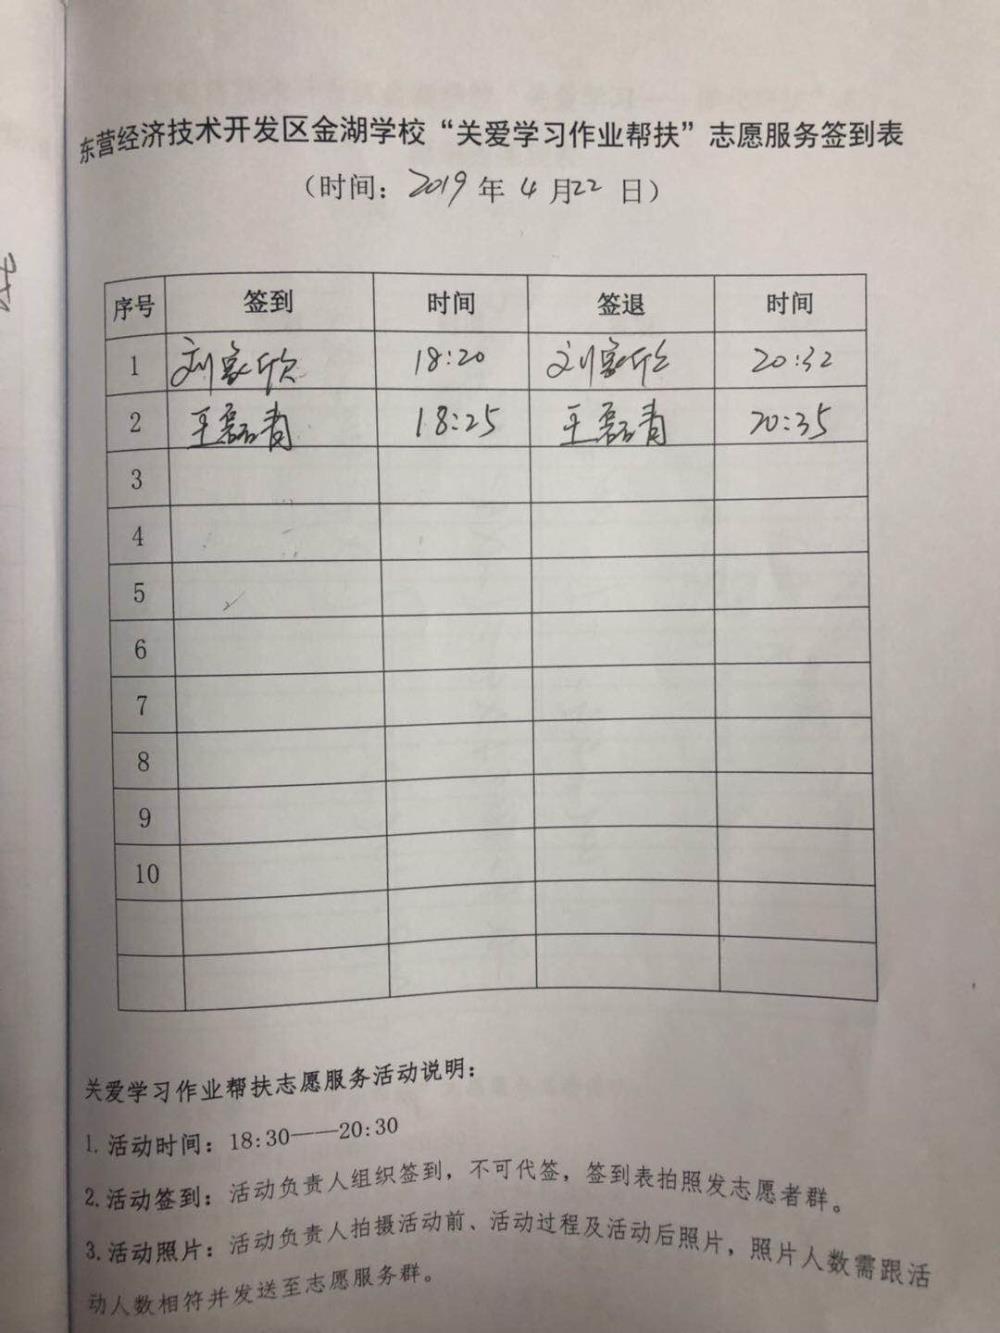 东营经济技术开发区金湖学校“关爱学习作业帮扶”志愿服务签到表
（时间：2019 年 4 月 22 日）
序号 签到 时间 签退 时间
1 刘家欣 18:20 刘家欣 20:32
2 王磊青 18:25 王磊青 20:35
3
4
5
6
7
8
9
10
关爱学习作业帮扶志愿服务活动说明：
1.活动时间：18:30——20:30
2.活动签到：活动负责人组织签到，不可代签，签到表拍照发志愿者群。
3.活动照片：活动负责人拍摄活动前、活动过程及活动后照片，照片人数需跟活
动人数相符并发送至志愿服务群。